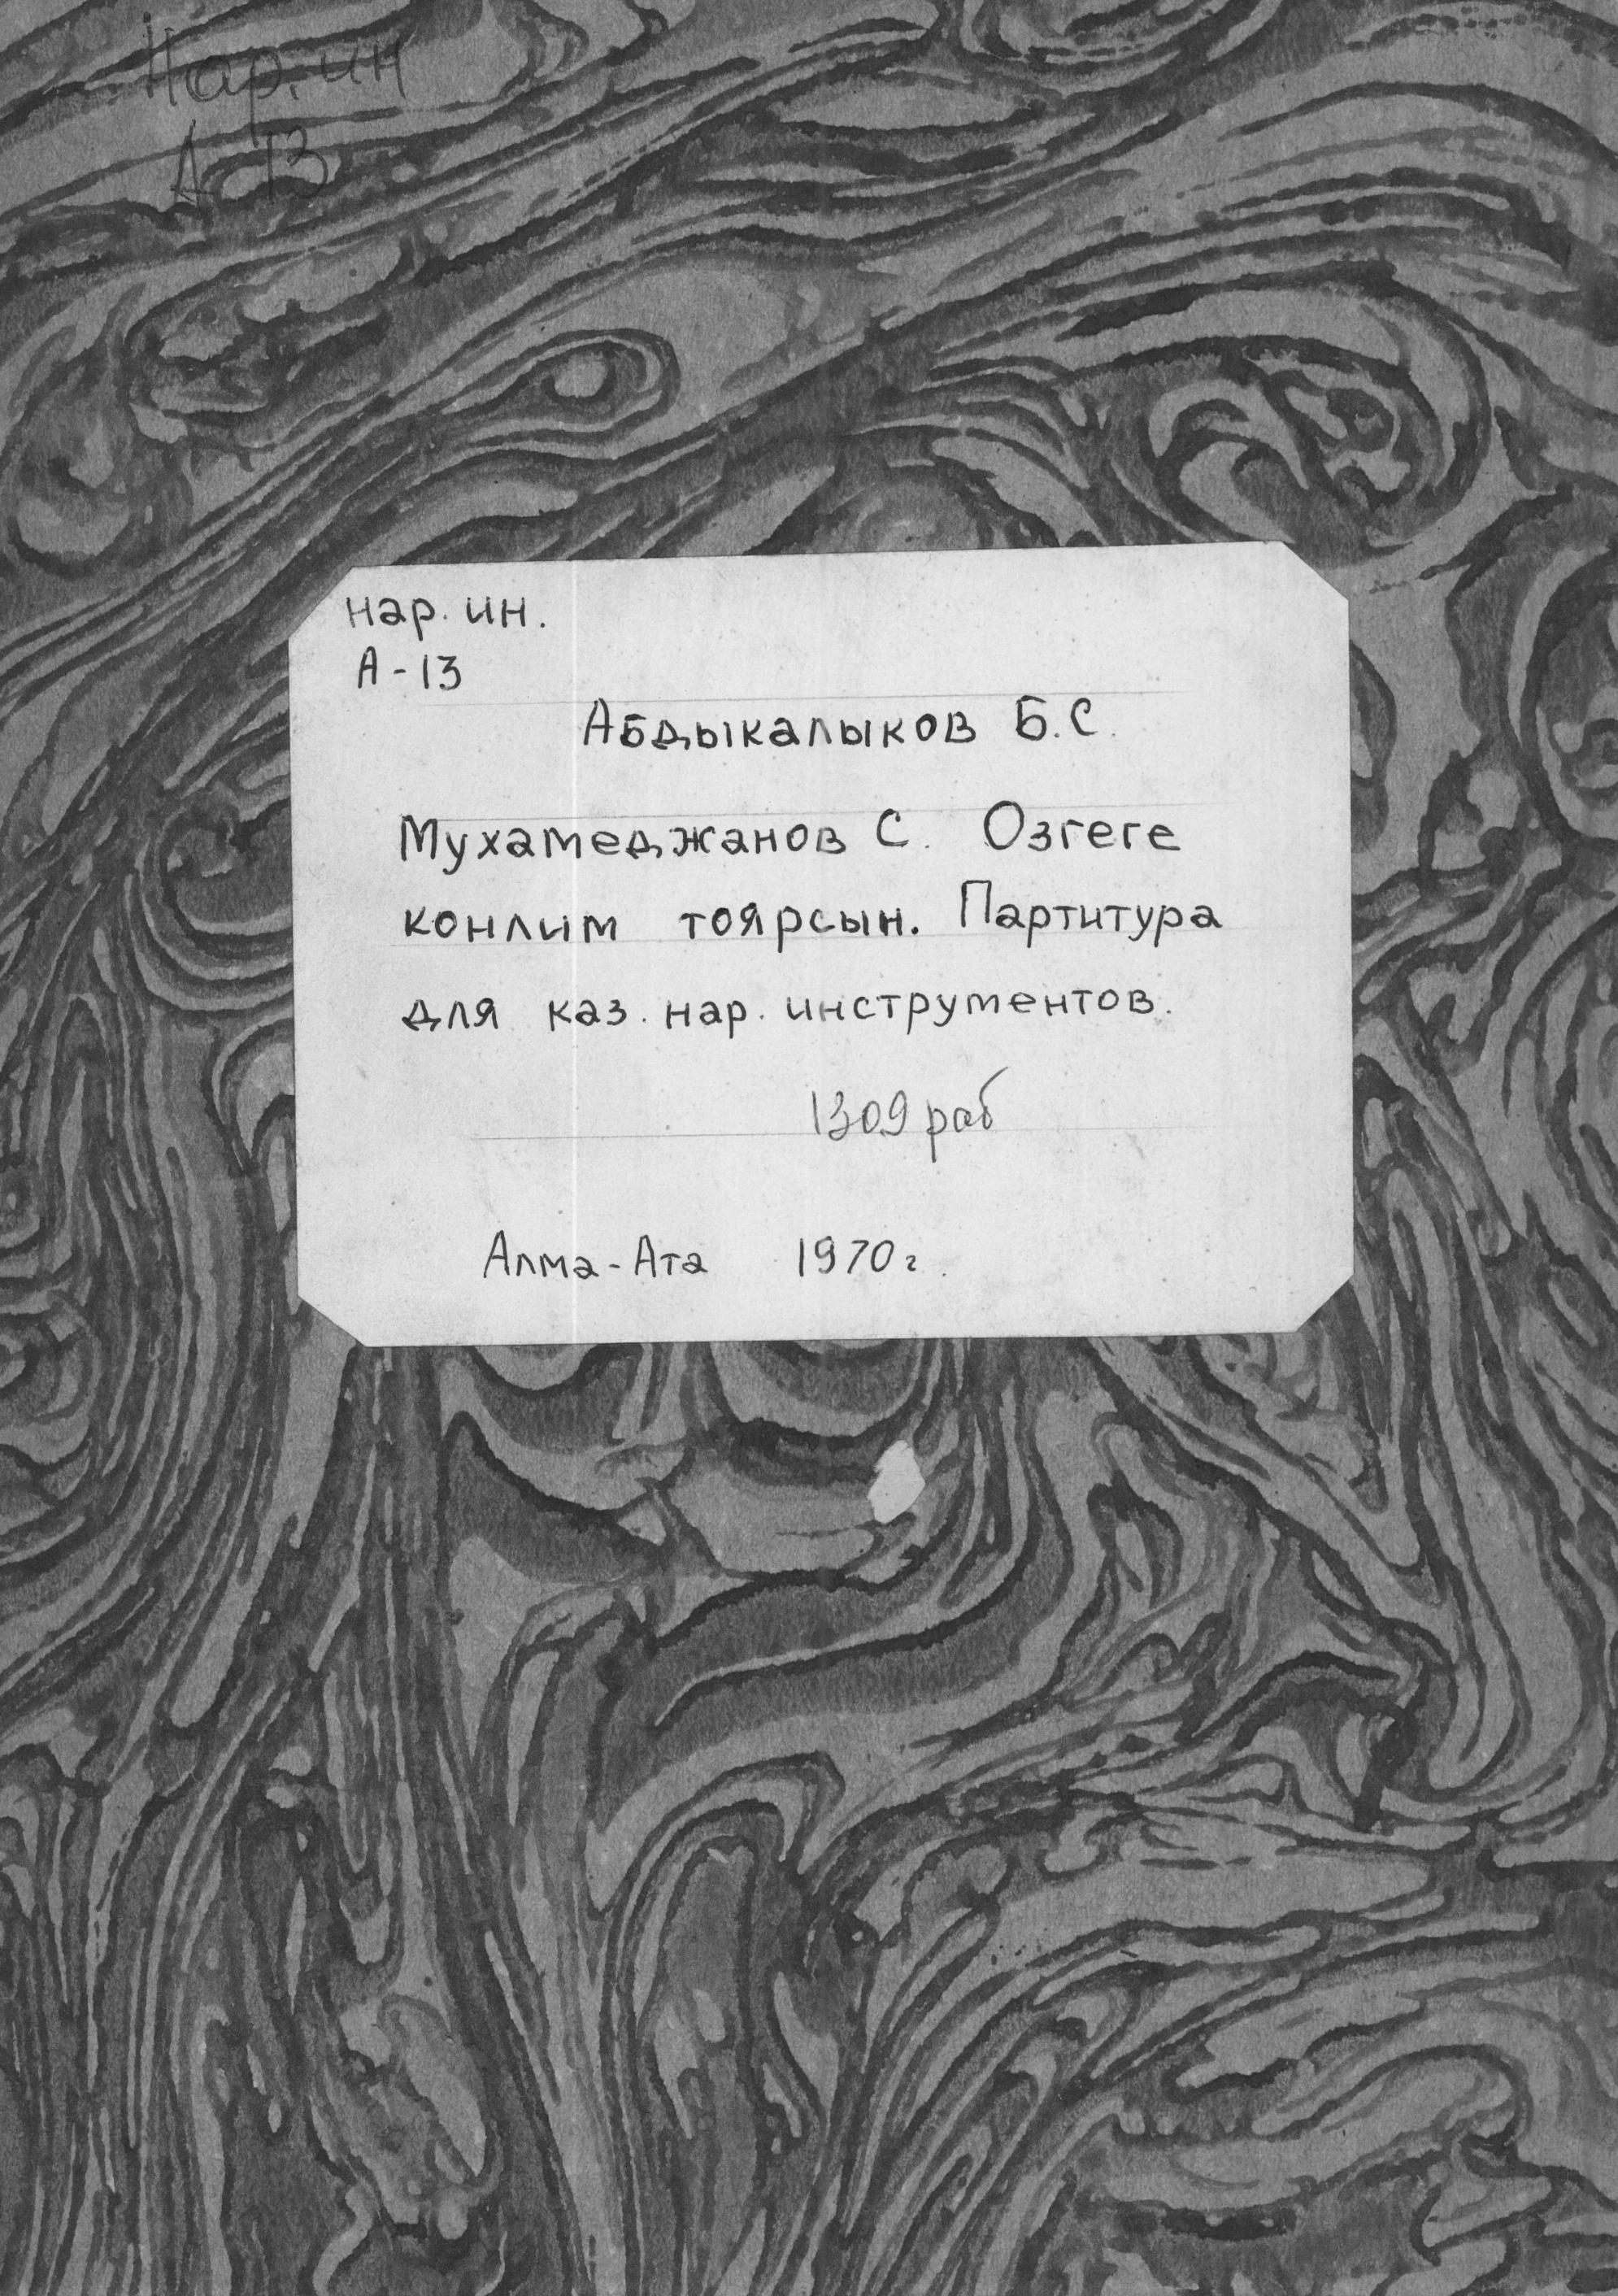 Нар. ин
А 13
нар. ин.
А-13
Абдыкалыков Б.С.
Мухамеджанов С. Озгеге
конлим тоярсын. Партитура
для каз. нар. инструментов.
1309 раб
Алма-Ата 1970 г.